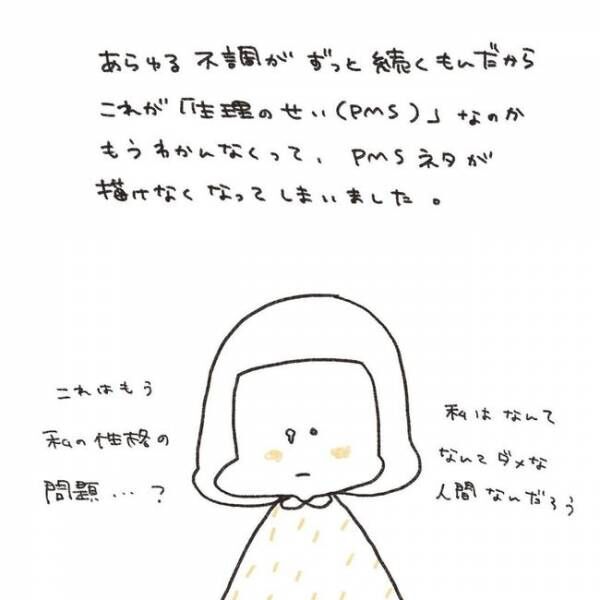 あらゆる 不調が ずっと 続く もんだから
これが 「生理の せい(PMS)」 なのか
もう わかんなくって、 PMS ネタが
描けなく なって しまいました。
これはもう
私の性格の
問題…?
私は なんて
なんて ダメな
人間 なんだろう